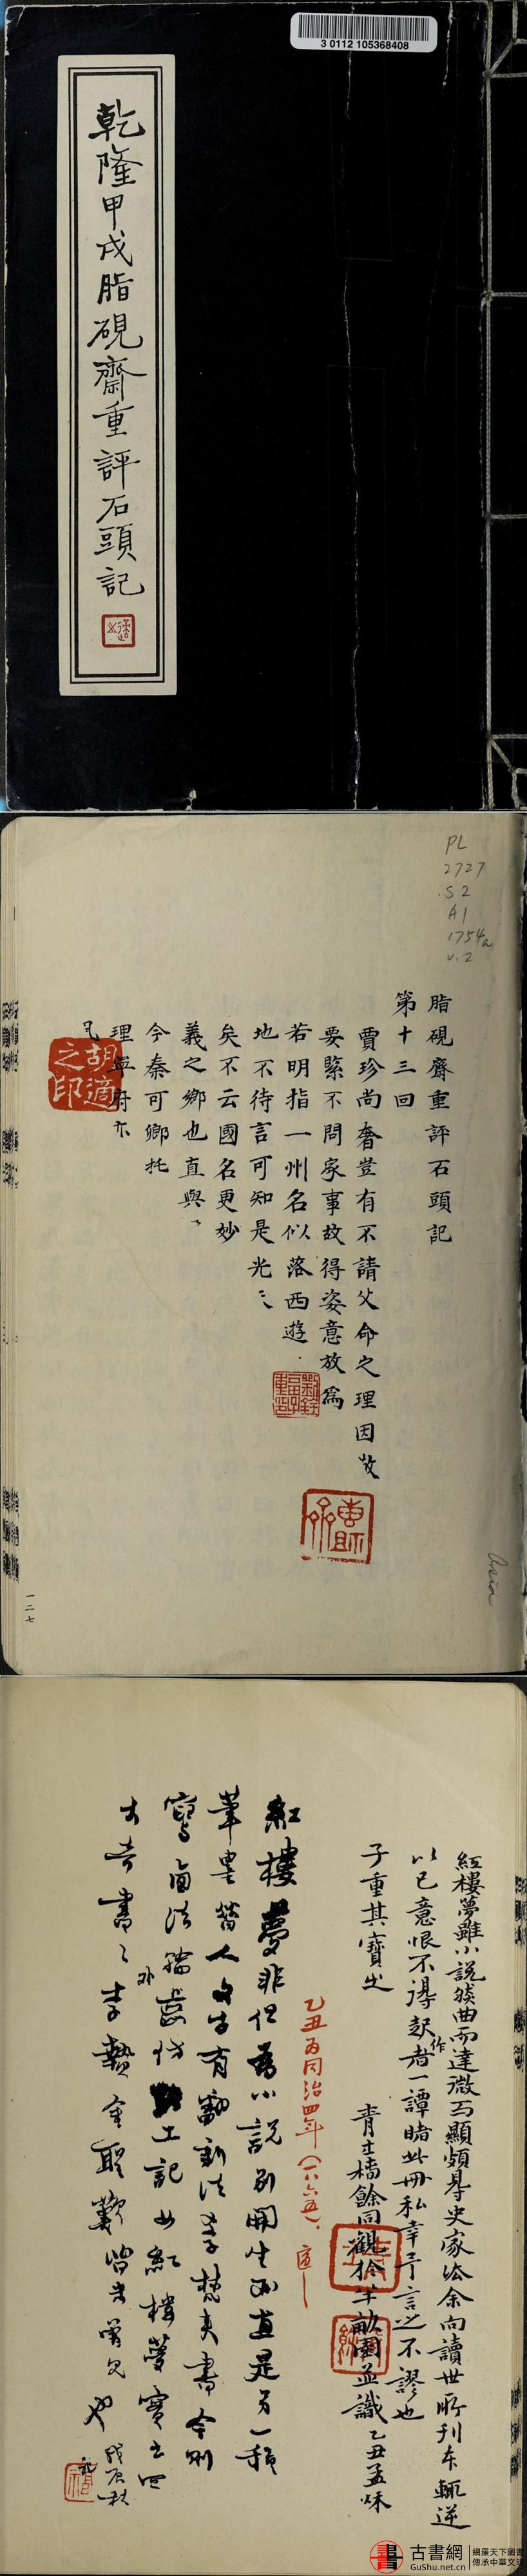 3 0112 105368408
乾隆甲戌脂硯齋重評石頭記
PL
2727
.S2
A1
1754a
v.2
脂硯齋重評石頭記
第十三回
賈珍尚奢豈有不請父命之理因敬
要緊不問家事故得姿意放為
若明指一州名似落西遊
地不待言可知是光〻
矣不云國名更妙
義之鄉也直與
今秦可卿托
理寧府亦
凡
胡適之印
Asia
一二七
紅樓夢雖小說然曲而達微而顯頗得史家法余向讀世所刊本輒逆
以己意恨不得起作者一譚睹此冊私幸予言之不謬也
子重其寶之
青士椿餘同觀於半畝園並識乙丑孟秋
乙丑為同治四年(一八六五). 適
紅樓夢非但為小說別開生面直是另一種
筆墨昔人文字有翻新法學梵夾書今則
寫西法輪齒仿考工記如紅樓夢實出四
大奇書之外李贄金聖歎皆未曾見也
戊辰秋
記
古書網
GuShu.net.cn
網羅天下圖書
傳承中華文明